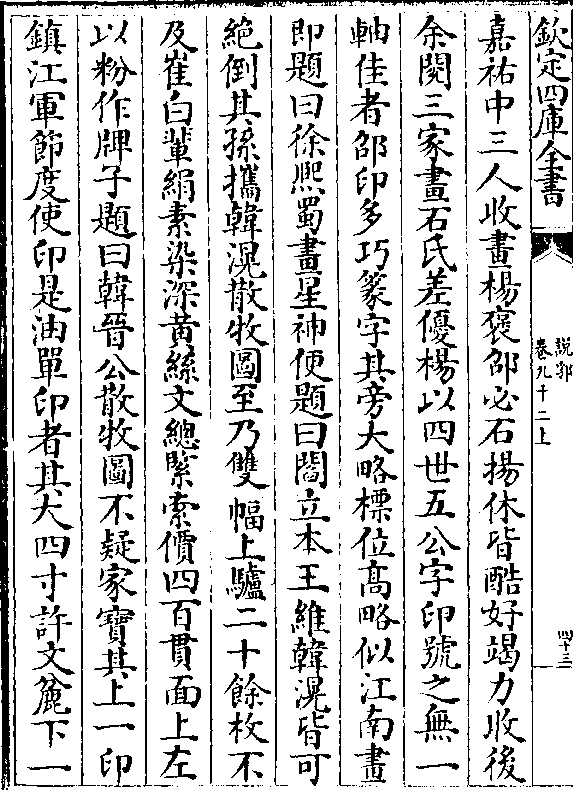 欽定四庫全書
說郛
卷九十二上
四十三
嘉祐中三人收畫楊褒邵必石揚休皆酷好竭力收後
余閱三家畫石氏差優楊以四世五公字印號之無一
軸佳者邵印多巧篆字其旁大略標位髙略似江南畫
即題曰徐熙蜀畫星神便題曰閻立本王維韓滉皆可
絕倒其孫攜韓滉散牧圖至乃雙幅上驢二十餘枚不
及崔白輩絹素染深黄絲文總緊索價四百貫面上左
以粉作牌子題曰韓晉公散牧圖不疑家寶其上一印
鎮江軍節度使印是油單印者其大四寸許文麄下一